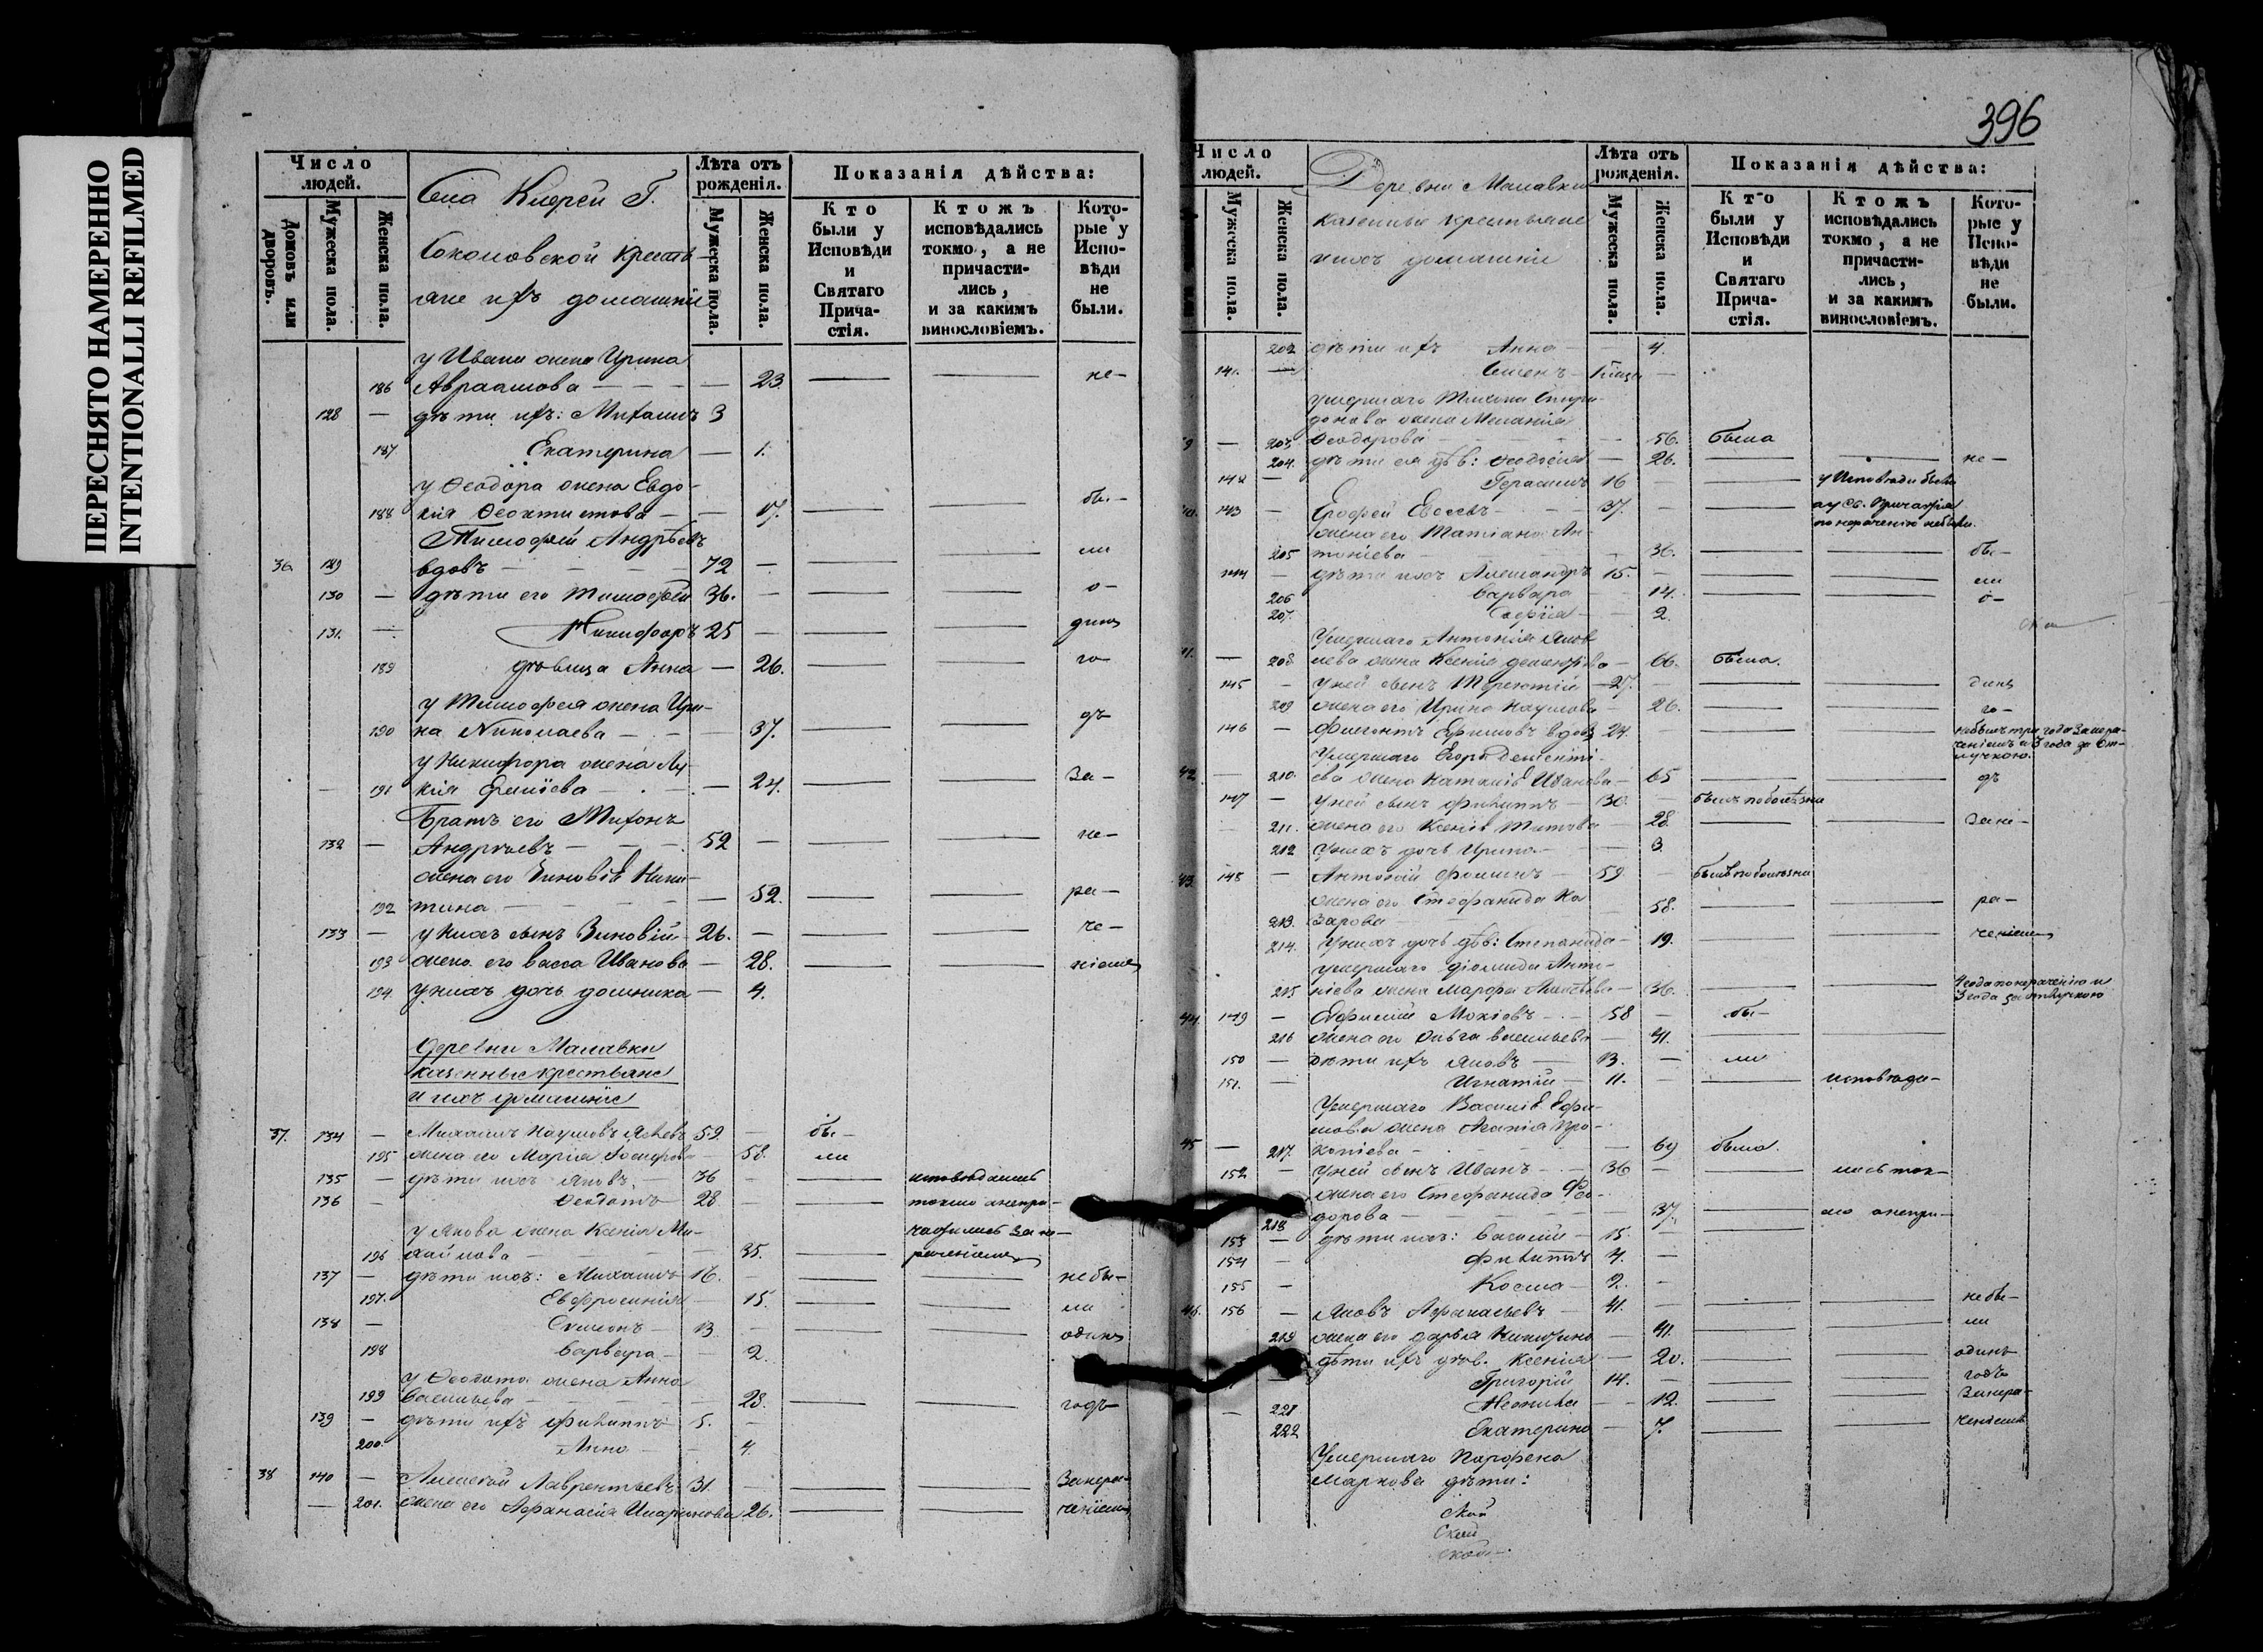 ПЕРЕСНЯТО НАМЕРЕННО
INTENTIONALLI REFILMED
Число людей.
Домовъ или дворовъ.
Мужеска пола.
Женска пола.
Села Кифрей Г.
Соколовской крестья-
яне ихъ домашніе
Лѣта отъ рожденія.
Мужеска пола.
Женска пола.
Показанія дѣйства:
Кто были у Исповѣди и Святаго Прича-стія.
Ктожъ исповѣдались токмо, а не причасти-лись, и за какимъ винословіемъ.
Кото-рые у Испо-вѣди не были.
у Ивана жена Ирина
186 Авраамова — 23 — — не-
128 — дѣти ихъ: Михаилъ 3
187 Екатерина — 1.
у Ѳеодора жена Евдо-
188 кія Ѳеоктистова — 17. — — бы-
Тимофей Андреевъ
36. 129 вдовъ — 72 — — — ли
130 — дѣти его Тимофей 36. — — — о-
131. — Никифоръ 25 — — — динъ
189 дѣвица Анна — 26. — — го-
у Тимофея жена Ири-
190 на Николаева — 37. — — дъ
у Никифора жена Лу-
191 кія — 24. — — За-
Братъ его Тихонъ
132 — Андреевъ — 52 — — не-
жена его Зиновія Ники-
192 тина — 52. — — ра-
133 — у нихъ сынъ Зиновій 26. — — — че-
193 жена его Васса Иванова — 28. — — ніемъ
194. у нихъ дочь Домника — 4.
Деревни Малавки
казенные крестьяне
и ихъ домашніе
37. 134 — Михаилъ Наумовъ 59. — бы-
195 жена его Марія — 58. ли
135 — дѣти ихъ Яковъ. — 36 — — исповѣдались
136 — Ѳеодотъ 28 — — токмо а непри-
у Якова жена Ксенія Ми- частились за не-
196 хайлова — 35. — раченіемъ
137 — дѣти ихъ: Михаилъ 16. — — — не бы-
197. Евфросинія — 15. — — ли
138 — Симеонъ — 13 — — — одинъ
198 Варвара — — 2.
у Ѳеодота жена Анна
199 Васильева — 28. — — годъ
139 — дѣти ихъ Филиппъ 5. —
200. Анна — — 4.
38 140 — Алексей Лаврентьевъ 31. — — — Занера-
— 201. жена его Афанасія Иларіонова 26. — — ченіемъ
396
Число людей.
Мужеска пола.
Женска пола.
Деревни Малавки
казенные крестьяне
ихъ домашніе
Лѣта отъ рожденія.
Мужеска пола.
Женска пола.
Показанія дѣйства:
Кто были у Исповѣди и Святаго Прича-стія.
Ктожъ исповѣдались токмо, а не причасти-лись, и за какимъ винословіемъ.
Кото-рые у Испо-вѣди не были.
202 дѣти ихъ Анна — 4.
141. — Семенъ —
умершаго Тихона Спири-
донова жена Меланія
203 Ѳеодорова — 56. была
204. дѣти ея дѣв: Ѳеодосія — 26. — — не —
142 — Герасимъ 16 — — у Исповѣди были
143 — Ерофей — 37. — — а у Св. Причастія
жена его Татіана Ан- по нераченію не были.
205 тоніева — 36. — — бы-
144 — дѣти ихъ Александръ 15. — — — ли
206 Варвара — 14. — — о-
207. Софія — 2.
Умершаго Антонія Яков-
208 лева жена Ксенія — 66. была.
145 — у ней сынъ Терентій — 27. — — — динъ
209 жена его Ирина Наумова — 26. — — го-
146 — Ефимовъ вдовъ 24. — — — небылъ три года за нера-
ченіемъ и 3 года за От-
лучкою.
Умершаго Егора
42. — 210. ева жена Наталія Иванова — 65 — — дъ
147 — у ней сынъ Филиппъ — 30. — былъ по болѣзни
211. жена его Ксенія Титова — 28. — — Зане-
212 у нихъ дочь Ирина — 3.
43. 148 — Антоній Фоминъ — 59 — былъ по болѣзни
жена его Стефанида На
213. зарова — 58. — — ра-
214. у нихъ дочь дѣв: Степанида — 19. — — ченіемъ
умершаго Діомида Анто-
215 ніева жена Марфа — 36. — — 4 года по нераченію и
3 года за отлучкою
44. 149 — Ефимій Мокіевъ — 58 — бы-
216 жена его Ольга Васильева — 41. — —
150 — дѣти ихъ Яковъ — 13. — ли
151. — Игнатій — 11. — — исповѣда-
Умершаго Василія Ефи-
мова жена Агапія Про-
45 — 217. копіева — 69 была.
152 — у ней сынъ Иванъ — 36 — — лись ток-
жена его Стефанида Фео-
218 дорова — 37. — мо а непри-
153 — дѣти ихъ: Василій — 15. — —
154 — Филиппъ 4. —
155 — Косма — 2. —
46. 156 — Яковъ Афанасьевъ — 41. — — — не бы-
219 жена его Дарья — 41. — — ли
дѣти ихъ дѣв. Ксенія — 20. — — одинъ
— Григорій 14. — — — годъ
221 — 12. — — Занера-
222 Екатерина — 7. — — ченіемъ
Умершаго Парфена
Маркова дѣти: